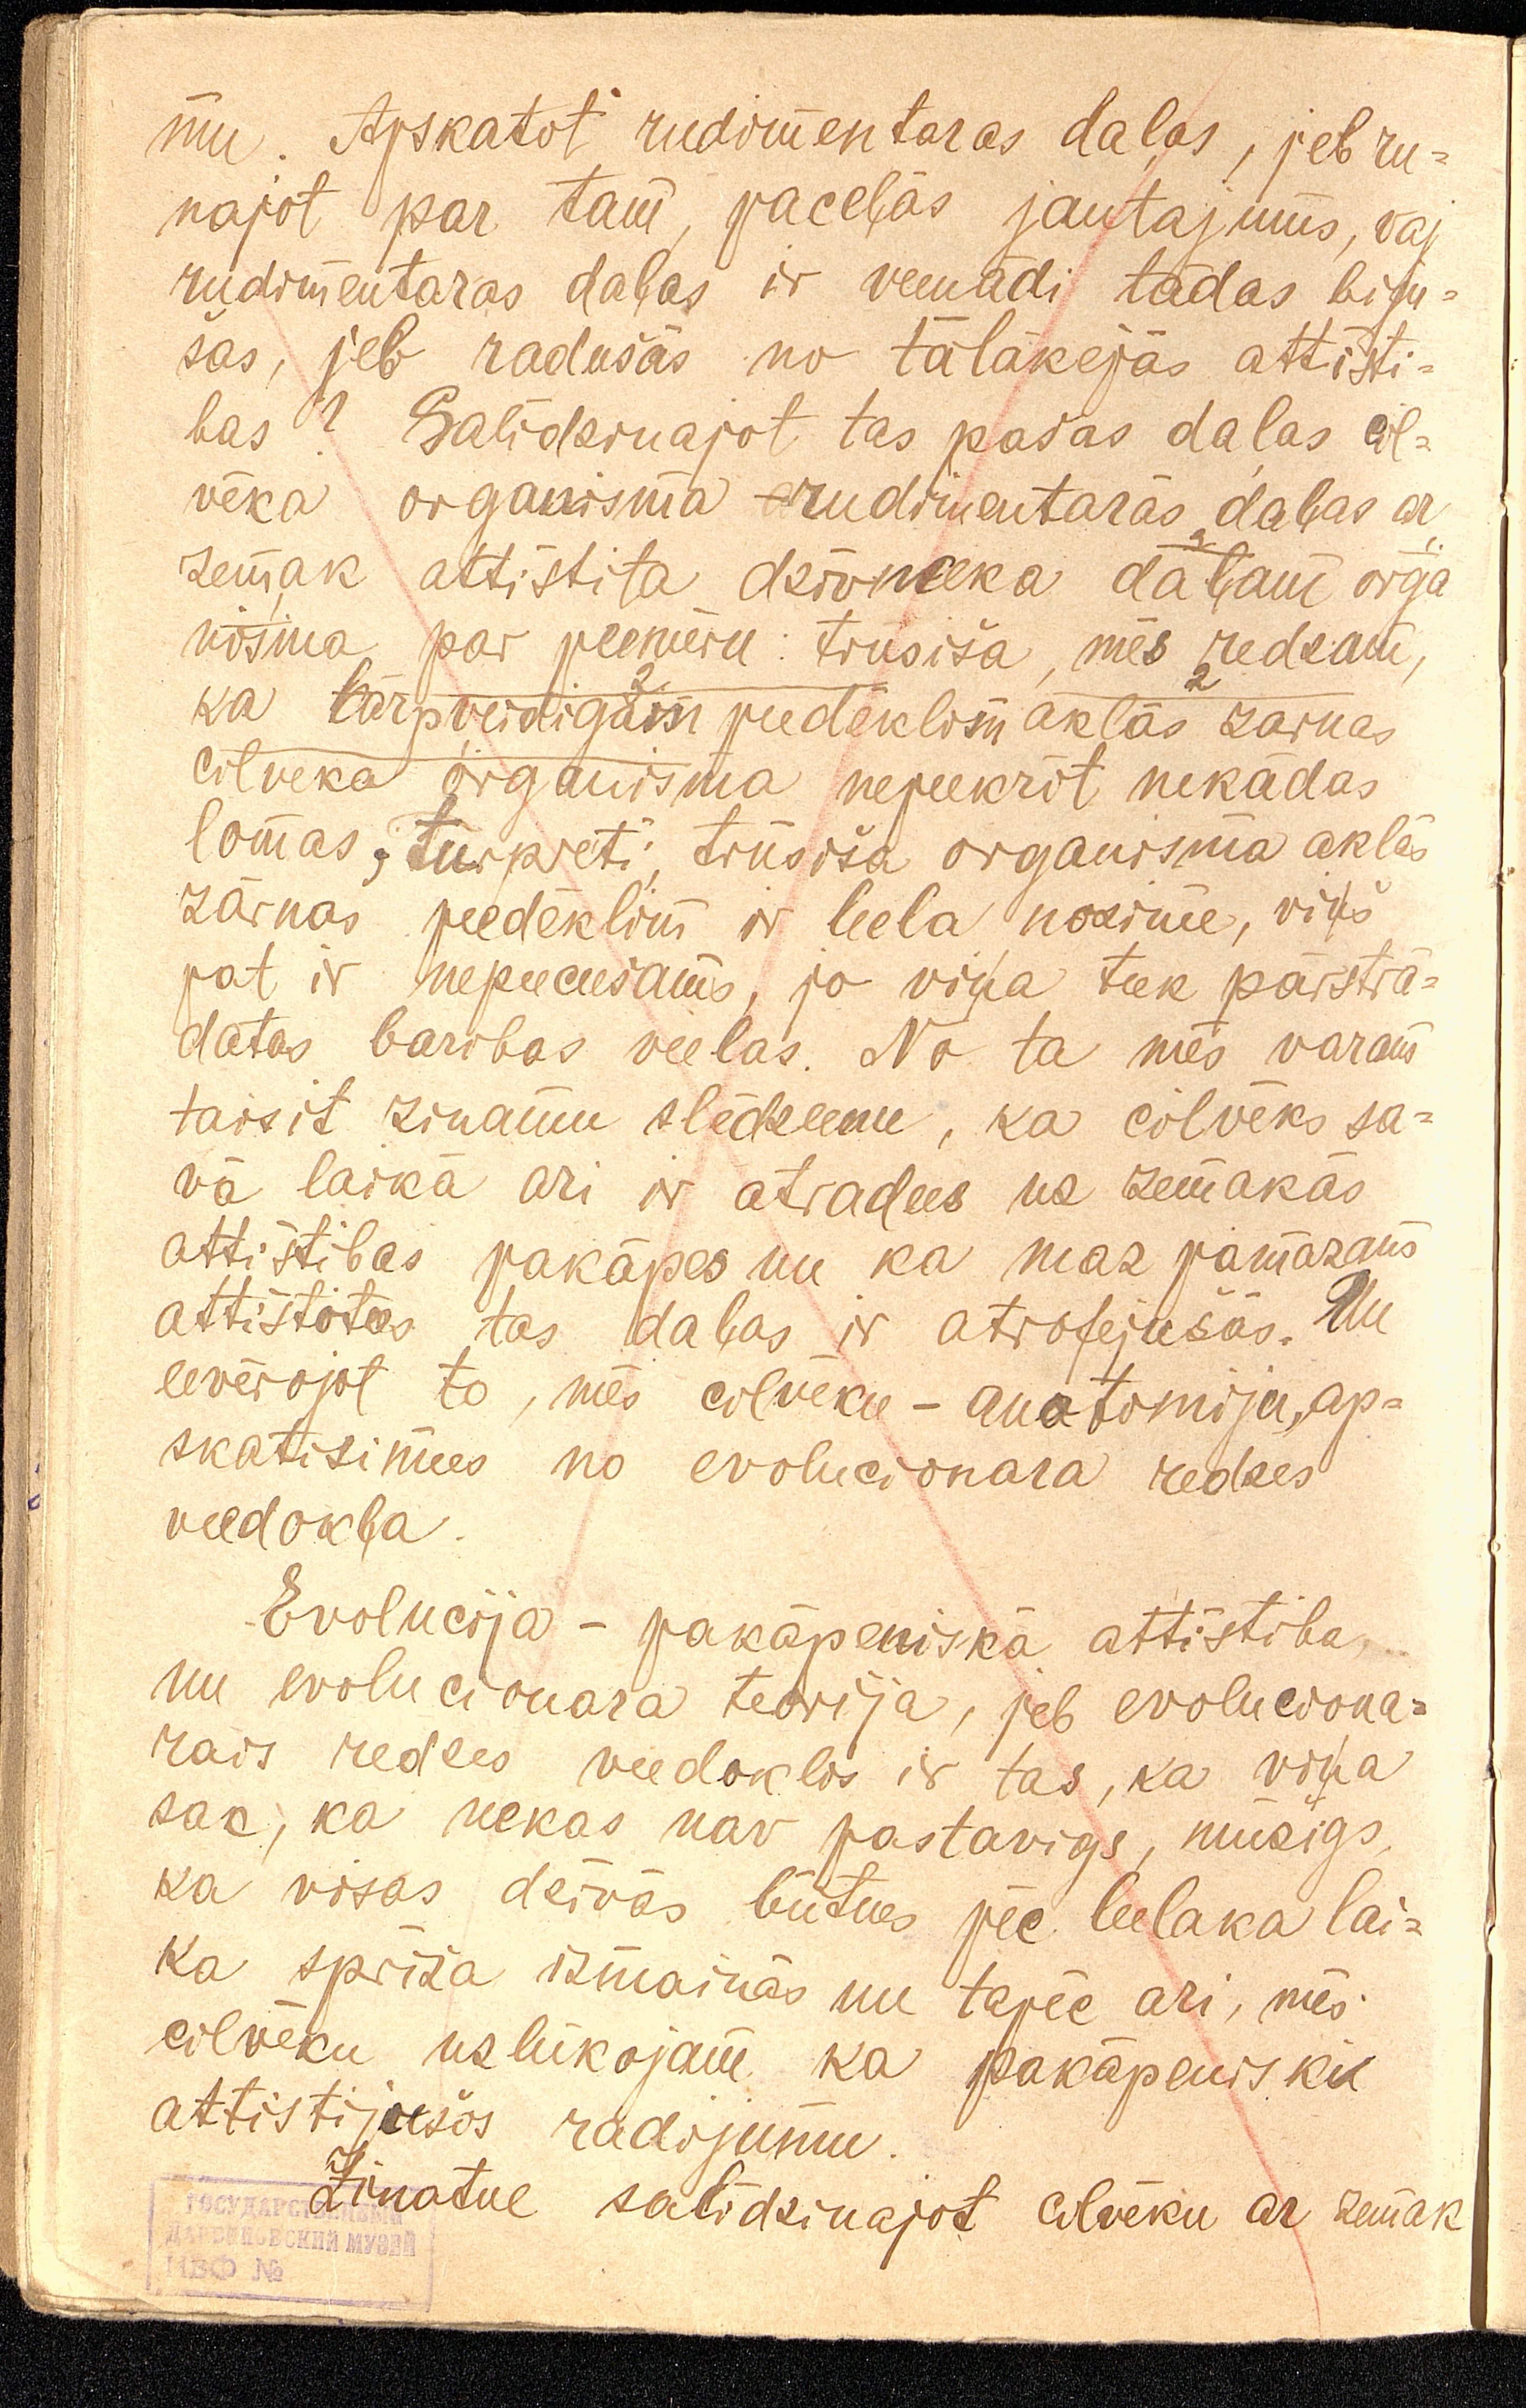 mu. Apskatot rudimentaras dalas, jeb ru=
najot par tam, paceļās jautajums, vaj
rudimentaras daļas ir veenādi tādas biju=
šas, jeb radušās no tālākejās attīsti=
bas? Salīdzinajot tas pašas daļas cil=
vēka organisma rudimentarās daļas ar
zemak attīstita dzīvneeka daļam orga
nisma par peemēru: trusiša, mēs redzam,
ka tārpveidigam 2 peedēklim aklās 2 zarnas
cilveka organisma nepeekrīt nekādas
lomas; turpreti, trusiša organisma aklās
zārnas peedēklim ir leela nozime, viņš
pat ir nepeeceešams, jo viņa teek pārstrā=
datas baribas veelas. No ta mēs varam
taisit zinamu slēdzeenu, ka cilvēks sa=
vā laikā ari ir atradees uz zemakās
attīstibas pakāpes un ka maz pamazam
attīstotees tas daļas ir atrofejušās. Un
eevērojot to, mēs cilvēku - anatomiju, ap=
skatisimees no evolucionara redzes
veedokļa.
Evolucija - pakāpeniskā attīstiba,
un evolucionara teorija, jeb evoluciona=
rais redzes veedoklis ir tas, ka viņa
sak, ka nekas nav pastavigs, mūzigs,
ka visas dzīvās būtnes pēc leelaka lai=
ka spriža izmainās un tapēc ari, mēs
cilvēku uzlūkojam ka pakāpenisku
attistijušos radijumu.
Zinatne salīdzinajot cilvēku ar zemak
ГОСУДАРСТВЕННЫЙ
ДАРВИНОВСКИЙ МУЗЕЙ
НВФ №